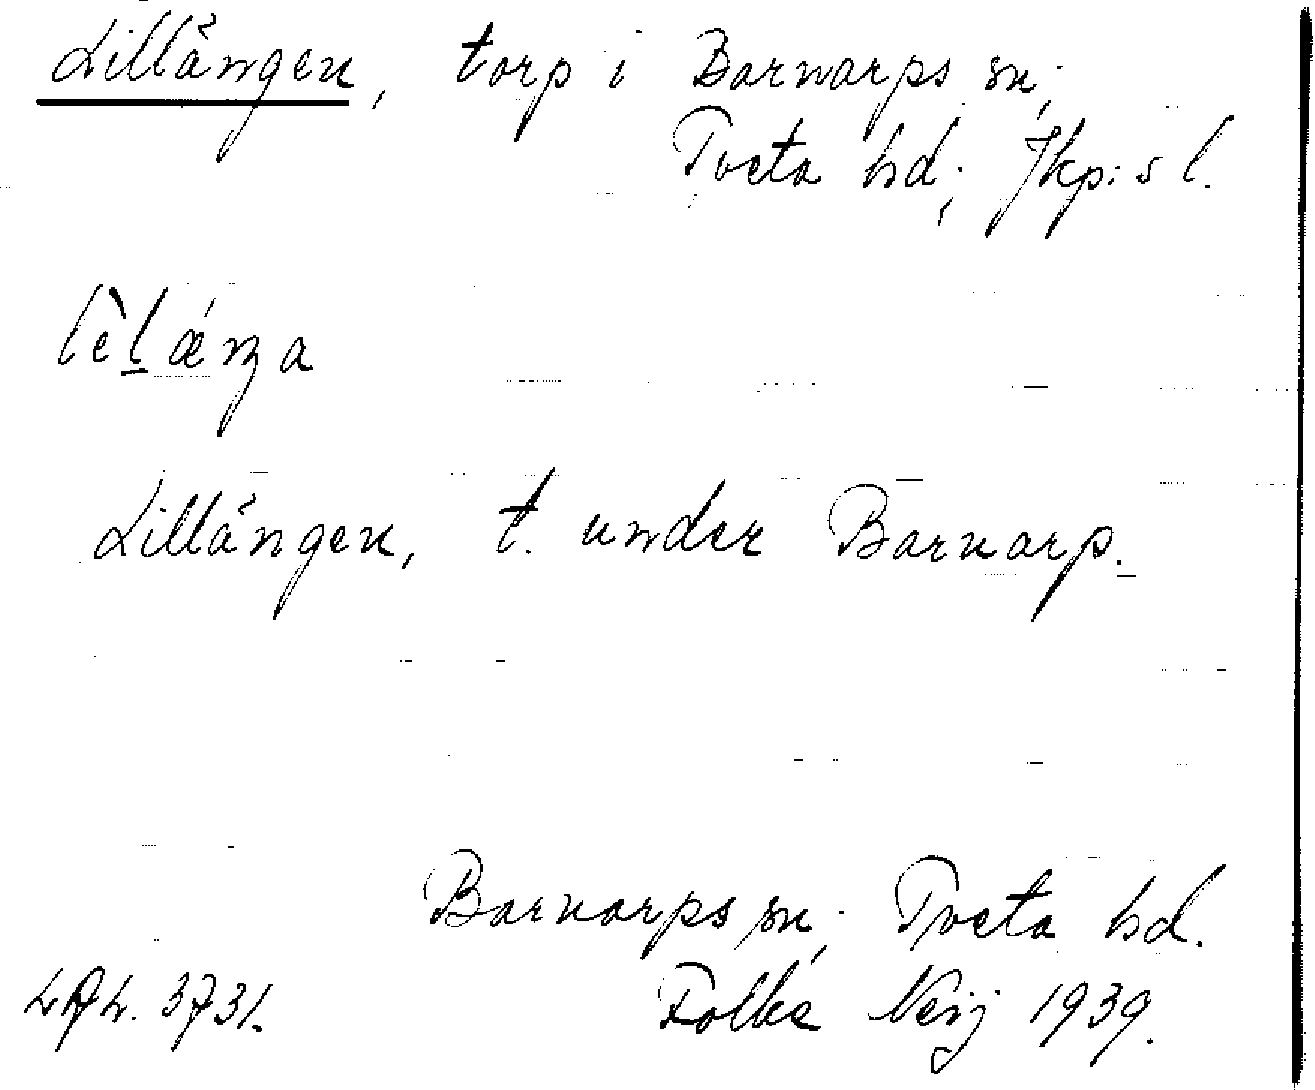 Lillängen, torp i Barnarps sn;
Tveta hd; Jkp:s l.
Lillängen, t. under Barnarp.
Barnarps sn; Tveta hd.
3731. Folke 1939.